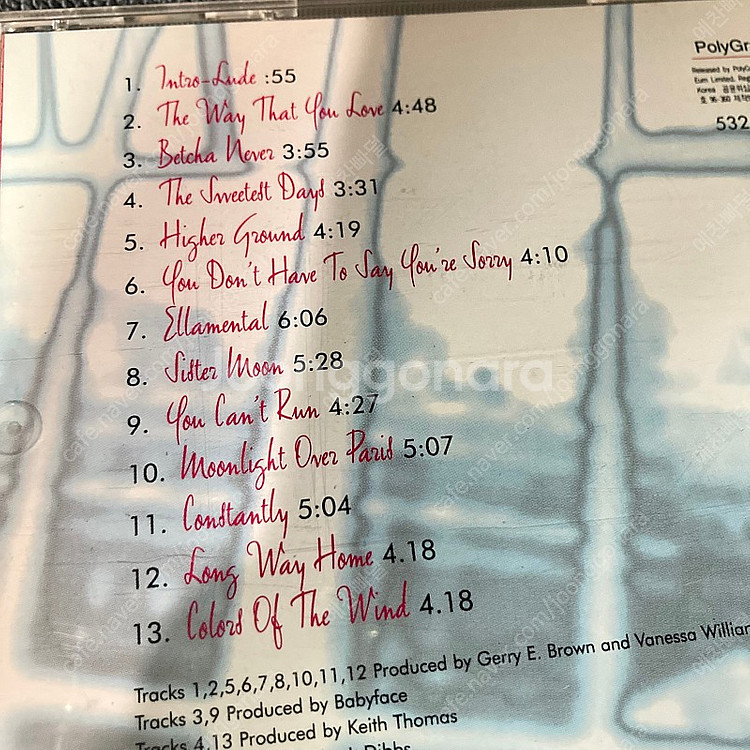 PolyGr
Released by PolyG
Eum Limited. Reg
Korea
532
1. Intro-Lude :55
2. The Way That You Love 4:48
3. Betcha Never 3:55
4. The Sweetest Days 3:31
5. Higher Ground 4:19
6. You Don't Have To Say You're Sorry 4:10
7. Ellamental 6:06
8. Sister Moon 5:28
9. You Can't Run 4:27
10. Moonlight Over Paris 5:07
11. Constantly 5:04
12. Long Way Home 4.18
13. Colors Of The Wind 4.18
Tracks 1,2,5,6,7,8,10,11,12 Produced by Gerry E. Brown and Vanessa Willian
Tracks 3,9 Produced by Babyface
Tracks 4,13 Produced by Keith Thomas
Dibbs
joonggonara
cafe.naver.com/joonggonara